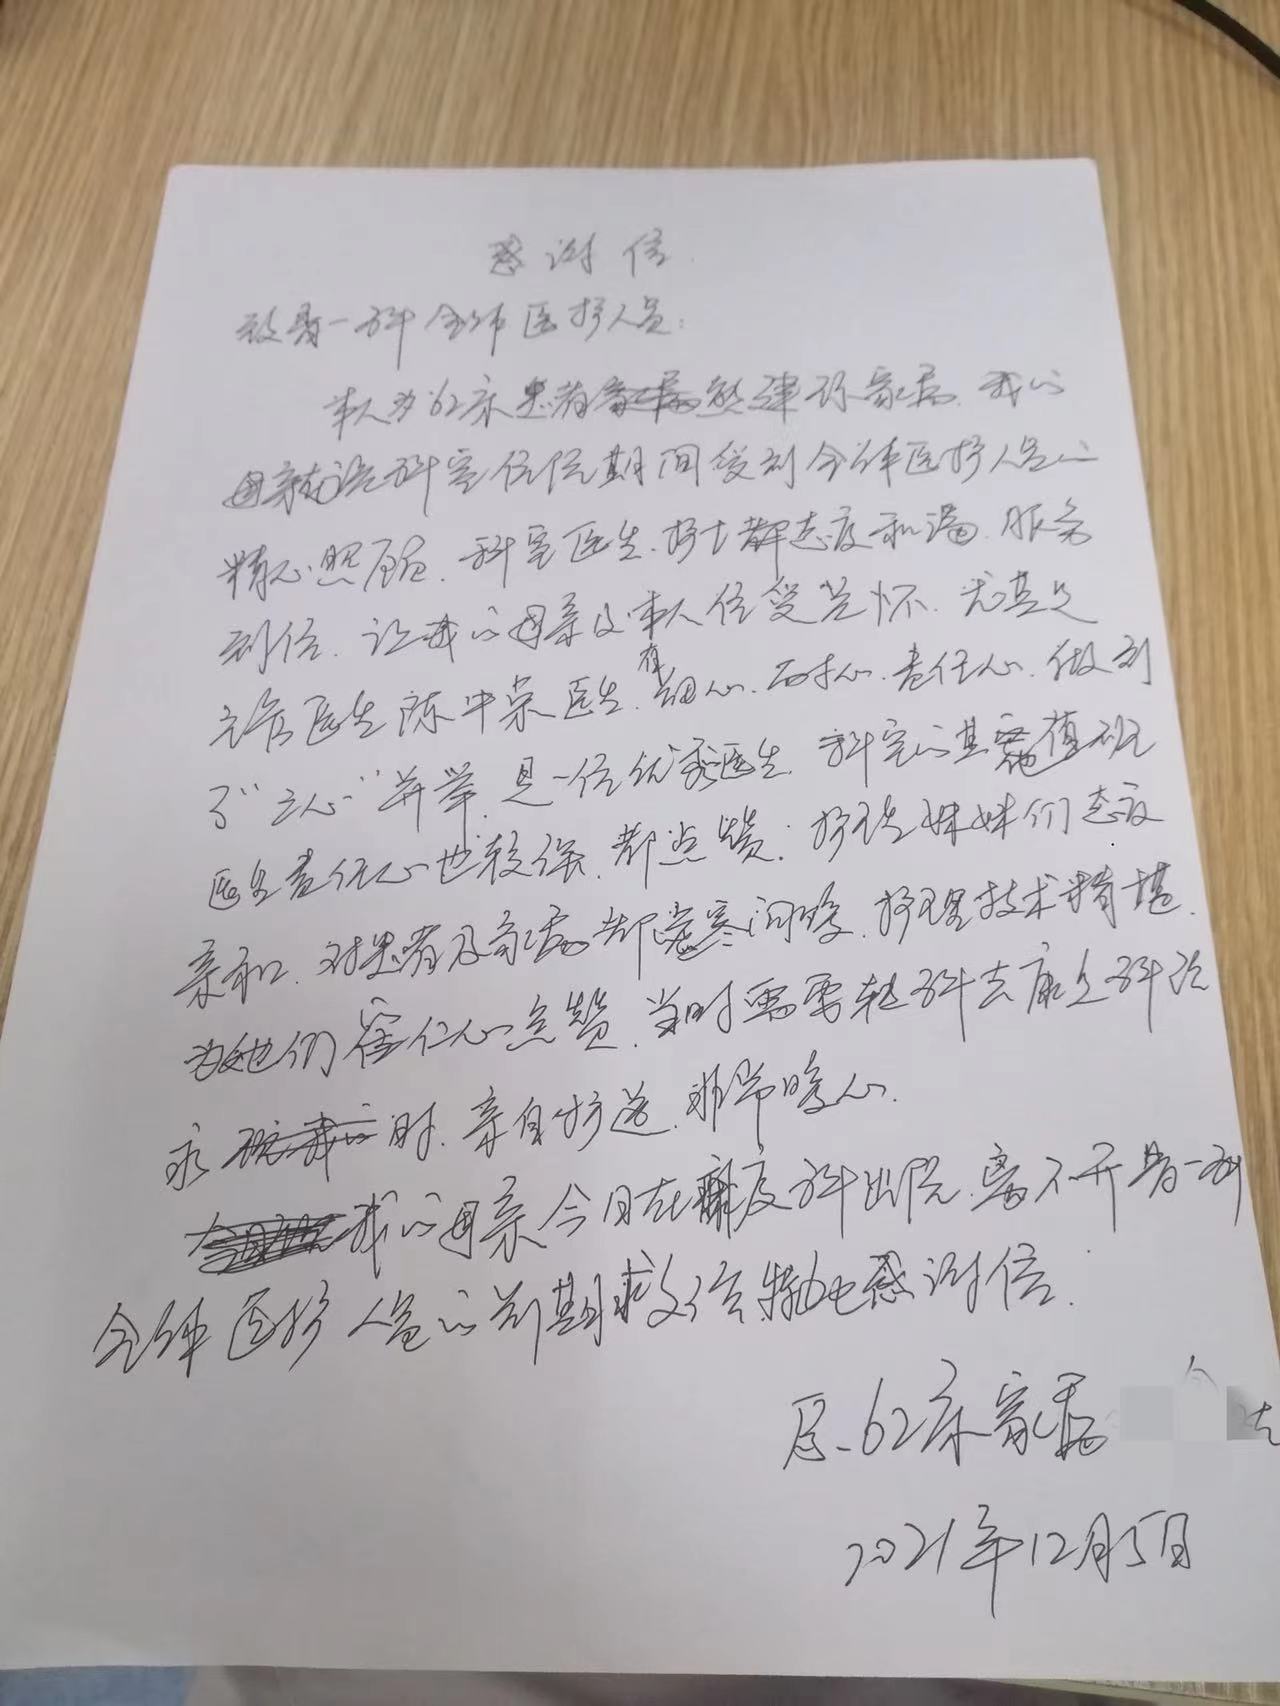 感谢信
致骨一科全体医护人员:
本人为62床患者熊建珍家属.我的
母亲在该科室住院期间受到全体医护人员的
精心照顾.科室医生.护士都态度和蔼.服务
到位.让我的母亲及本人倍受关怀.尤其是
主管医生陈中荣医生.有细心.耐心.责任心.做到
了“三心”并举.是一位优秀医生.科室的其他值班
医生责任心也较强.都点赞;护理妹妹们态度
亲和.对患者及家属都嘘寒问暖.护理技术精堪.
为她们 仁心点赞.当时需要转科去康复科治
时.亲自护送.非常暖心.
我的母亲今日在康复科出院.离不开骨一科
全体医护人员的前期救治.特此感谢信.
原.62床家属
2021年12月5日